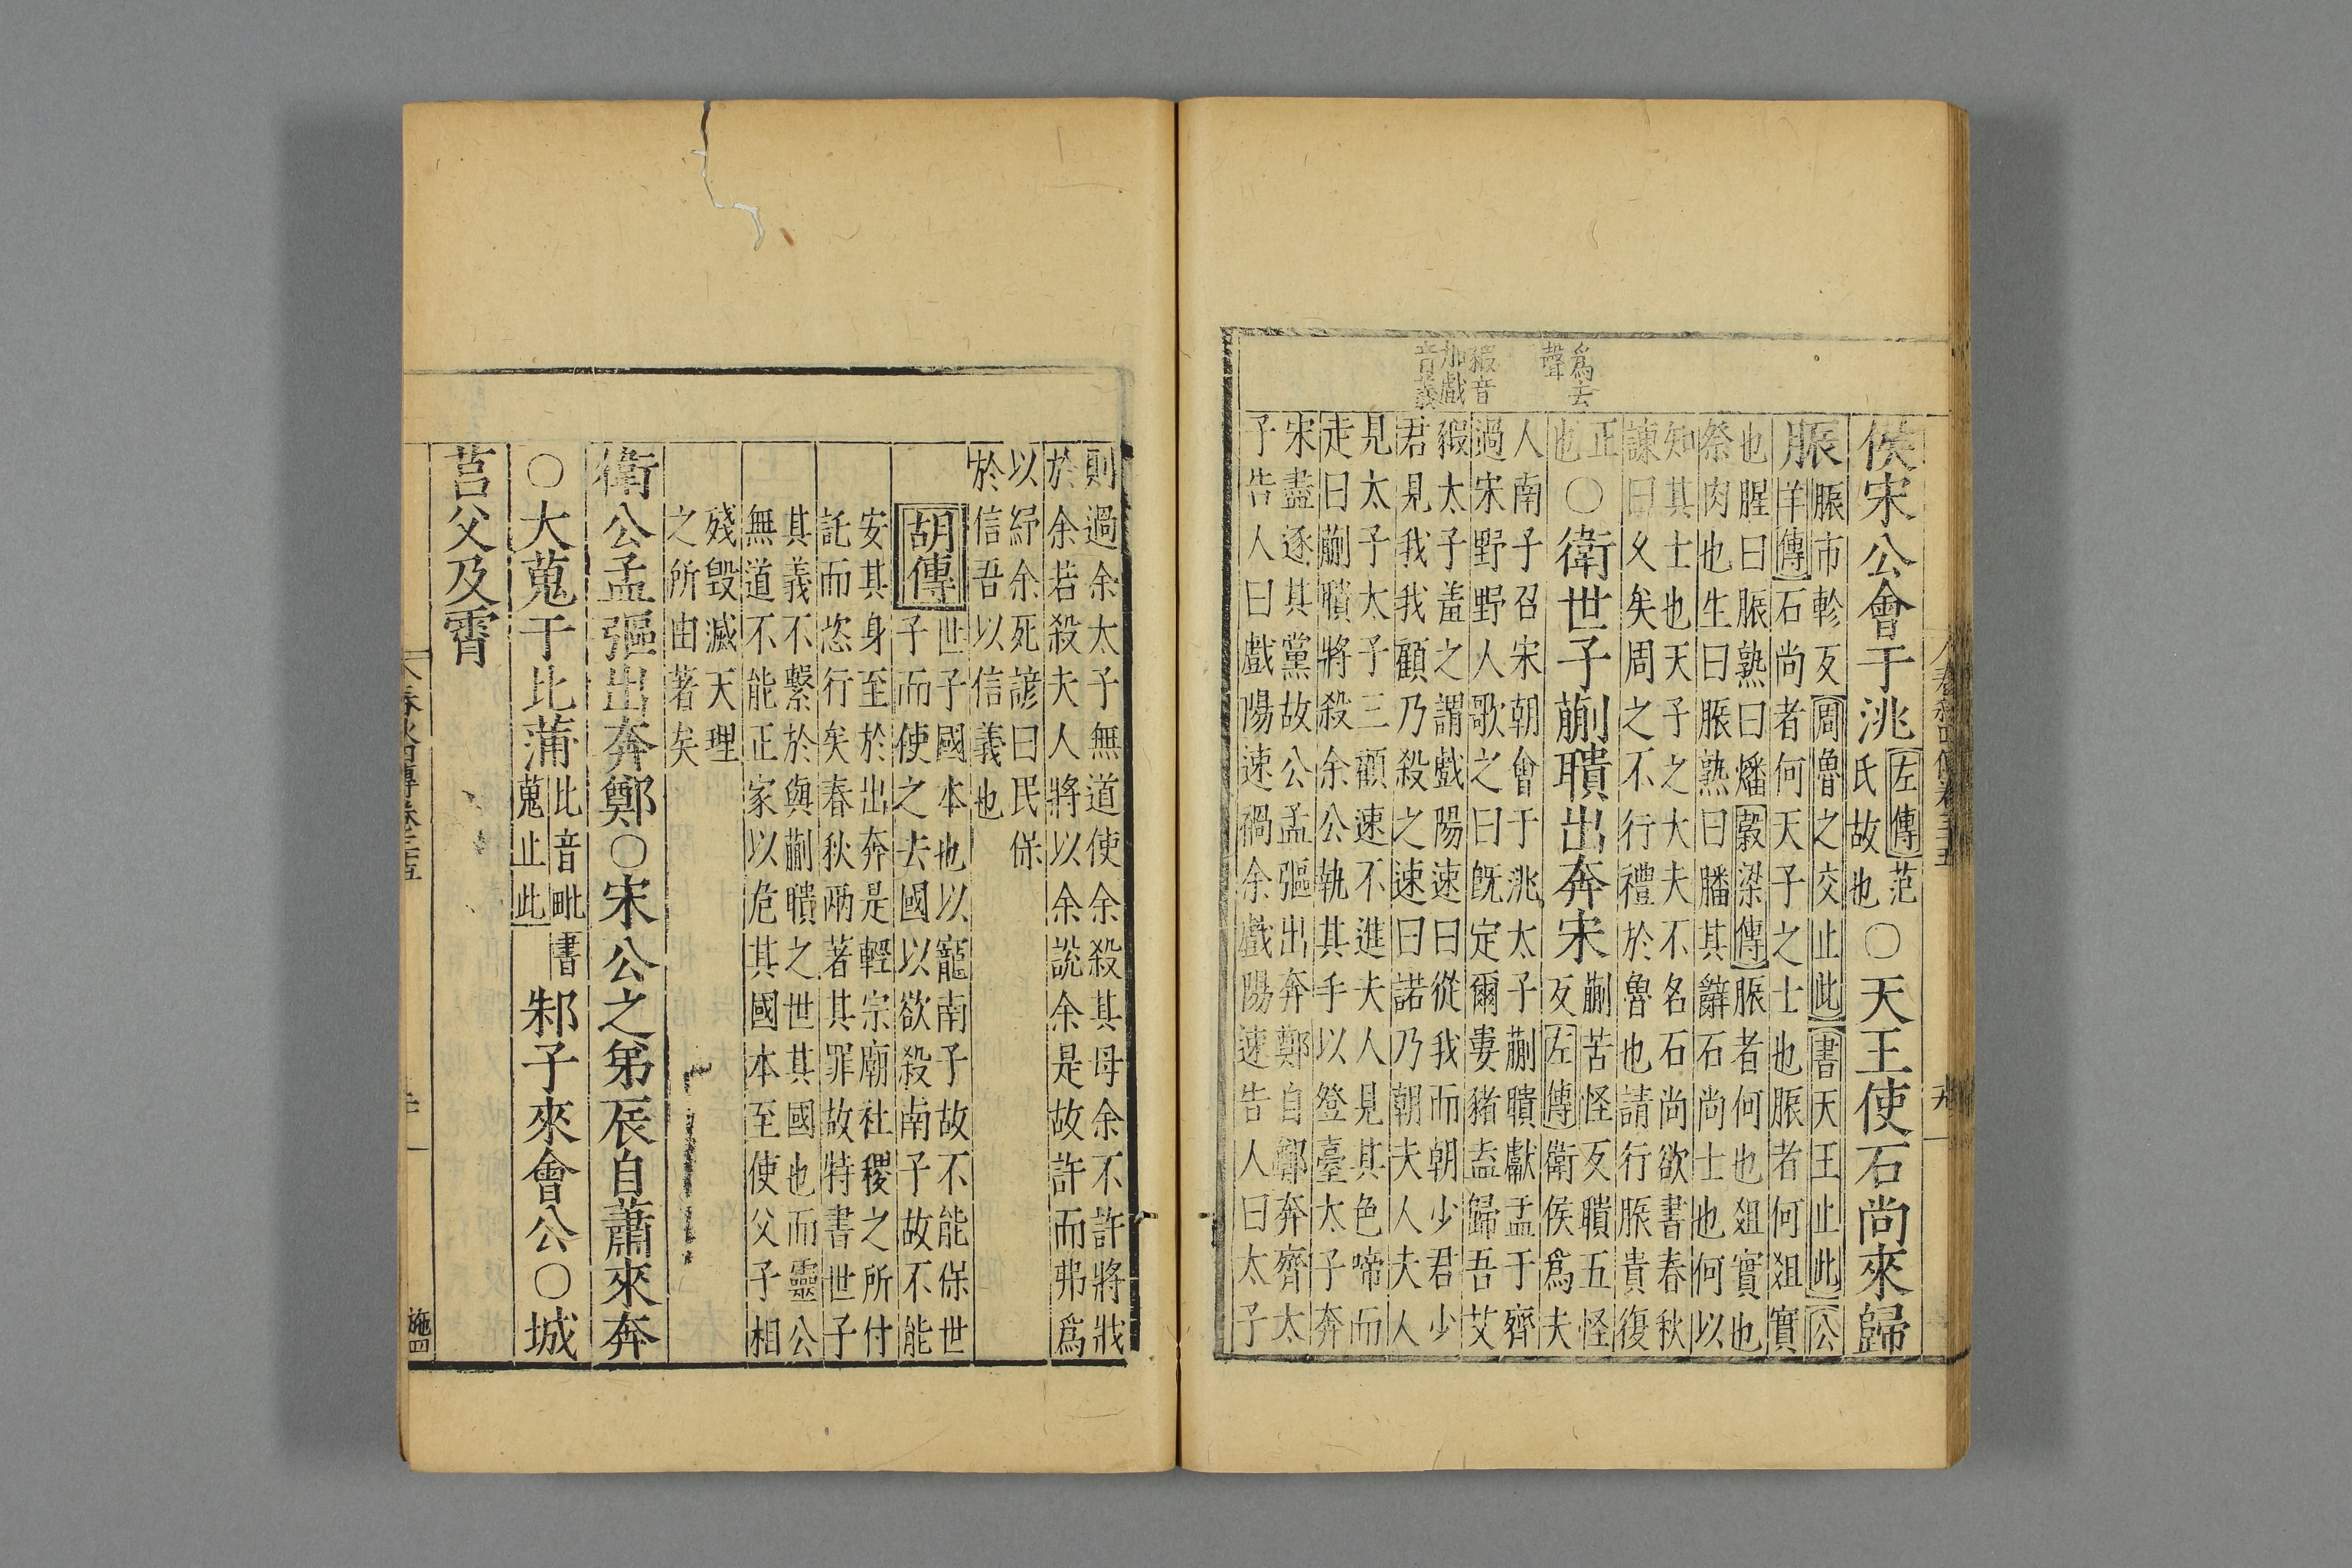 爲去
聲
豭音
加戲
音羲
侯宋公會于洮左傳范
氏故也○天王使石尚來歸
脤脤市軫反周魯之交止此書天王止此公
羊傳石尚者何天子之士也脤者何俎實
也腥曰脤熟曰燔穀梁傳脤者何也俎實也
祭肉也生曰脤熟曰膰其辭石尚士也何以
知其士也天子之大夫不名石尚欲書春秋
諫曰久矣周之不行禮於魯也請行脤貴復
正
也○衛世子蒯聵出奔宋蒯苦怪反聵五怪
反左傳衛侯爲夫
人南子召宋朝會于洮太子蒯聵獻盂于齊
過宋野野人歌之曰旣定爾婁豬盍歸吾艾
豭太子羞之謂戲陽速曰從我而朝少君少
君見我我顧乃殺之速曰諾乃朝夫人夫人
見太子太子三顧速不進夫人見其色啼而
走曰蒯聵將殺余公執其手以登臺太子奔
宋盡逐其黨故公孟彄出奔鄭自鄭奔齊太
子告人曰戲陽速禍余戲陽速告人曰太子
則過余太子無道使余殺其母余不許將戕
於余若殺夫人將以余說余是故許而弗爲
以紓余死諺曰民保
於信吾以信義也
胡傳世子國本也以寵南子故不能保世
子而使之去國以欲殺南子故不能
安其身至於出奔是輕宗廟社稷之所付
託而恣行矣春秋兩著其罪故特書世子
其義不繫於與蒯聵之世其國也而靈公
無道不能正家以危其國本至使父子相
殘毀滅天理
之所由著矣
衛公孟彄出奔鄭○宋公之弟辰自蕭來奔
○大蒐于比蒲比音毗書
蒐止此邾子來會公○城
莒父及霄
春秋四傳卷三十五